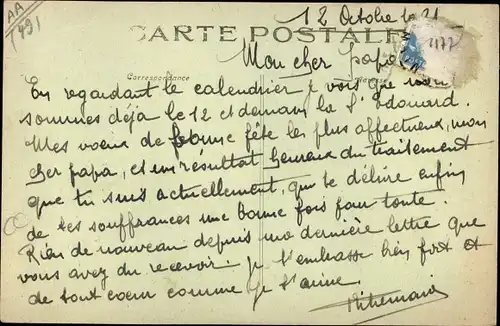 AA
1491
12 Octobre 21
CARTE POSTALE
1177
Mon cher papa
Correspondance
Adresse
En regardant le calendrier je vois que nous
sommes déjà le 12 et demain la St Edouard.
Mes voeux de bonne fête les plus affectueux, mon
cher papa, et un resultat heureux du traitement
que tu suis actuellement, qui te délivre enfin
de tes souffrances une bonne fois pour toute.
Rien de nouveau depuis ma dernière lettre que
vous avez du recevoir. je t'embrasse bien fort et
de tout coeur comme je t'aime.